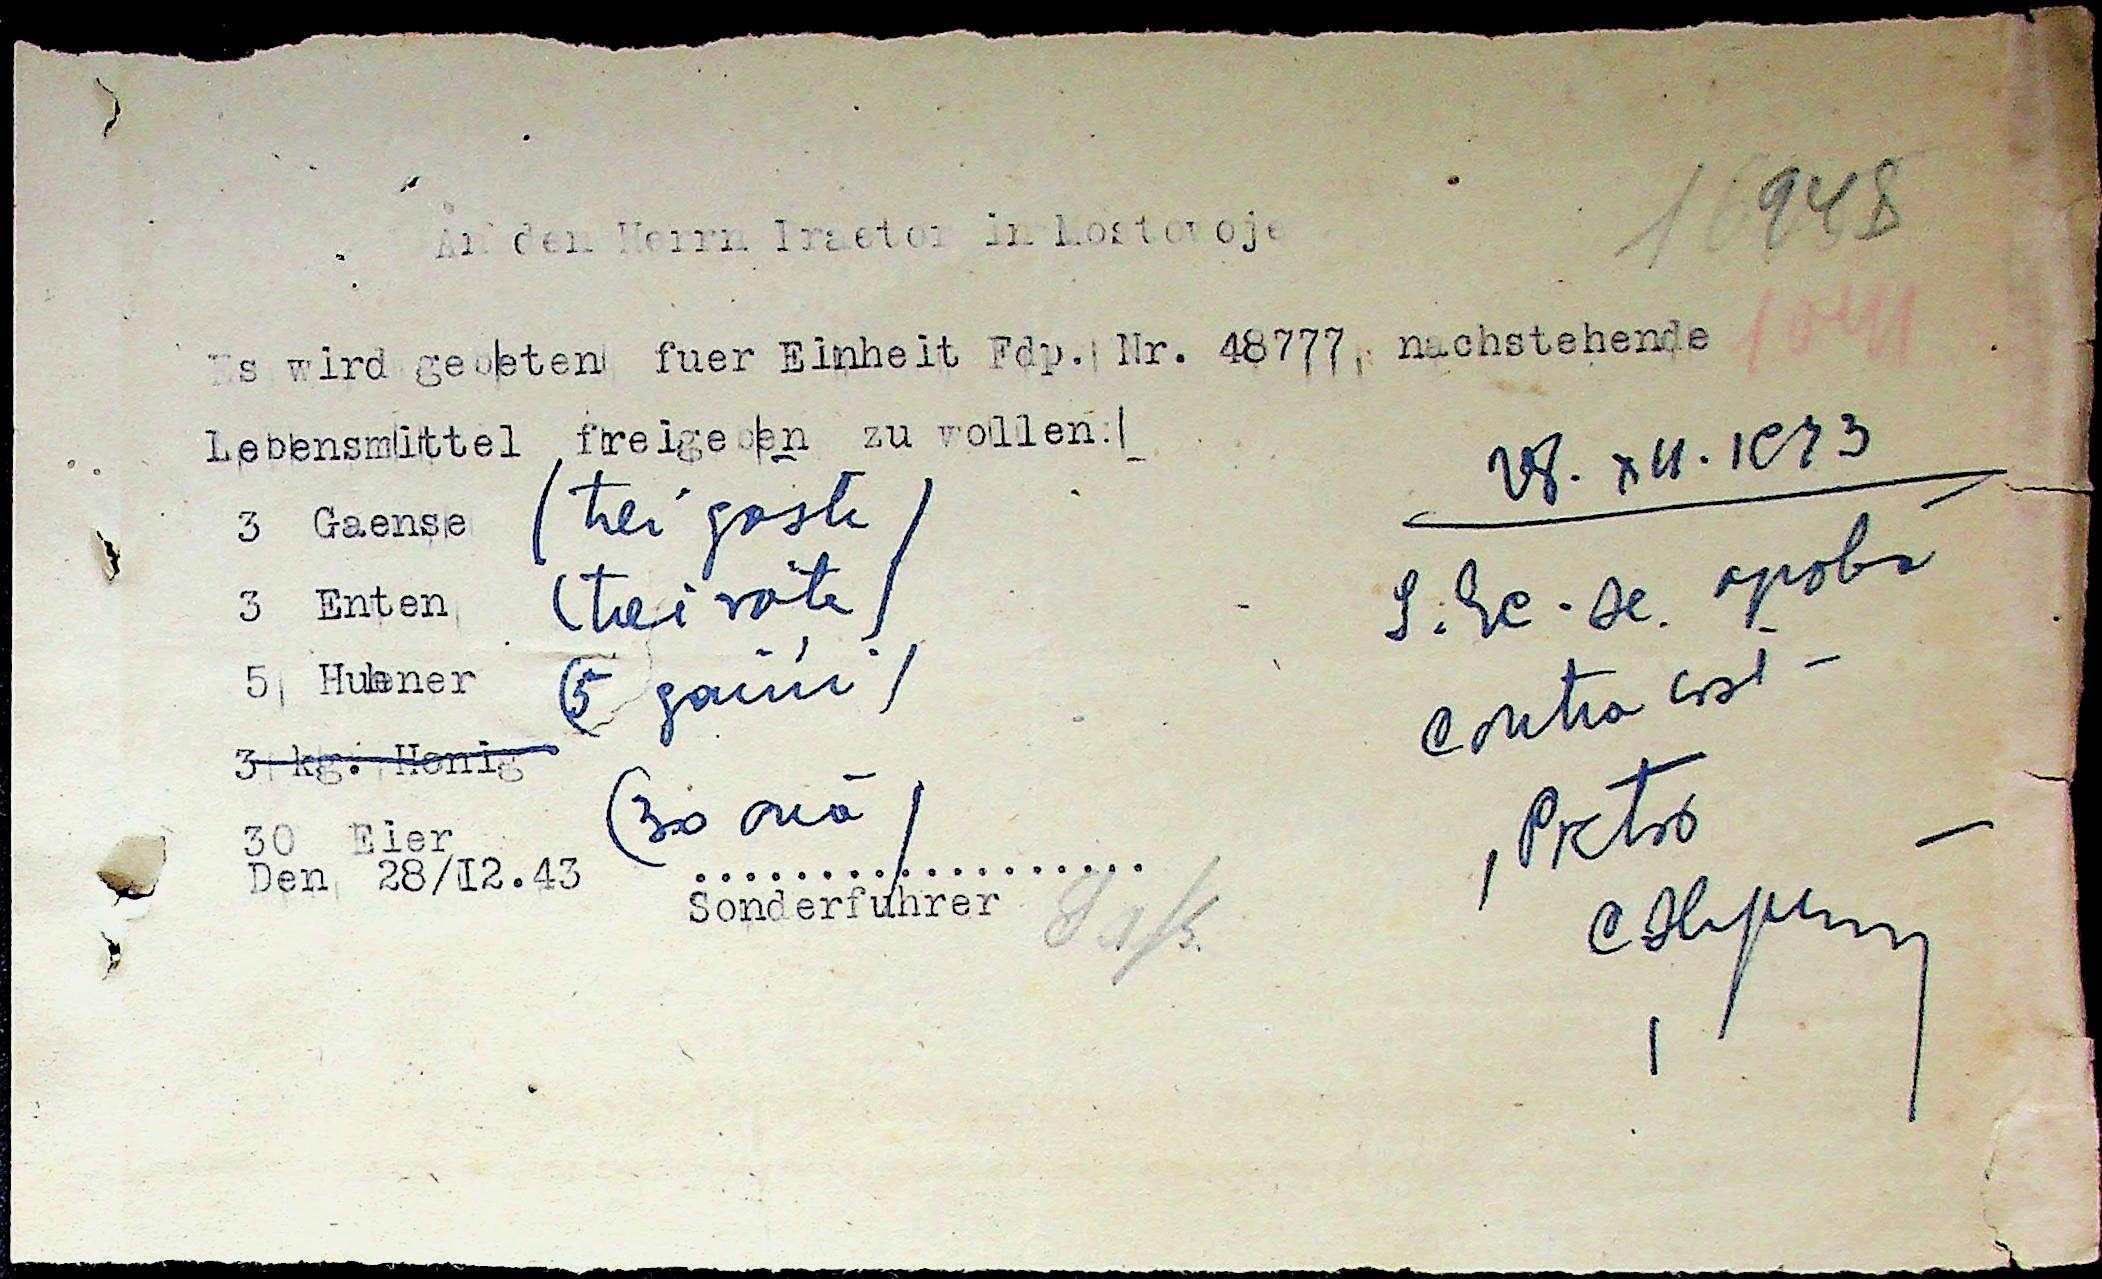 16948
An den Herrn Praetor in Mostovoje
1041
Es wird gebeten fuer Einheit Fdp. Nr. 48777, nachstehende
Lebensmittel freigeben zu wollen:
3 Gaense (trei gâste)
3 Enten (trei rațe)
5 Huhner (5 gaini)
3 kg. Honig
30 Eier (30 ouă)
Den 28/12.43
Sonderfuhrer
28. XII. 1943
S. Ec. se aproba
contra cost
Pretor